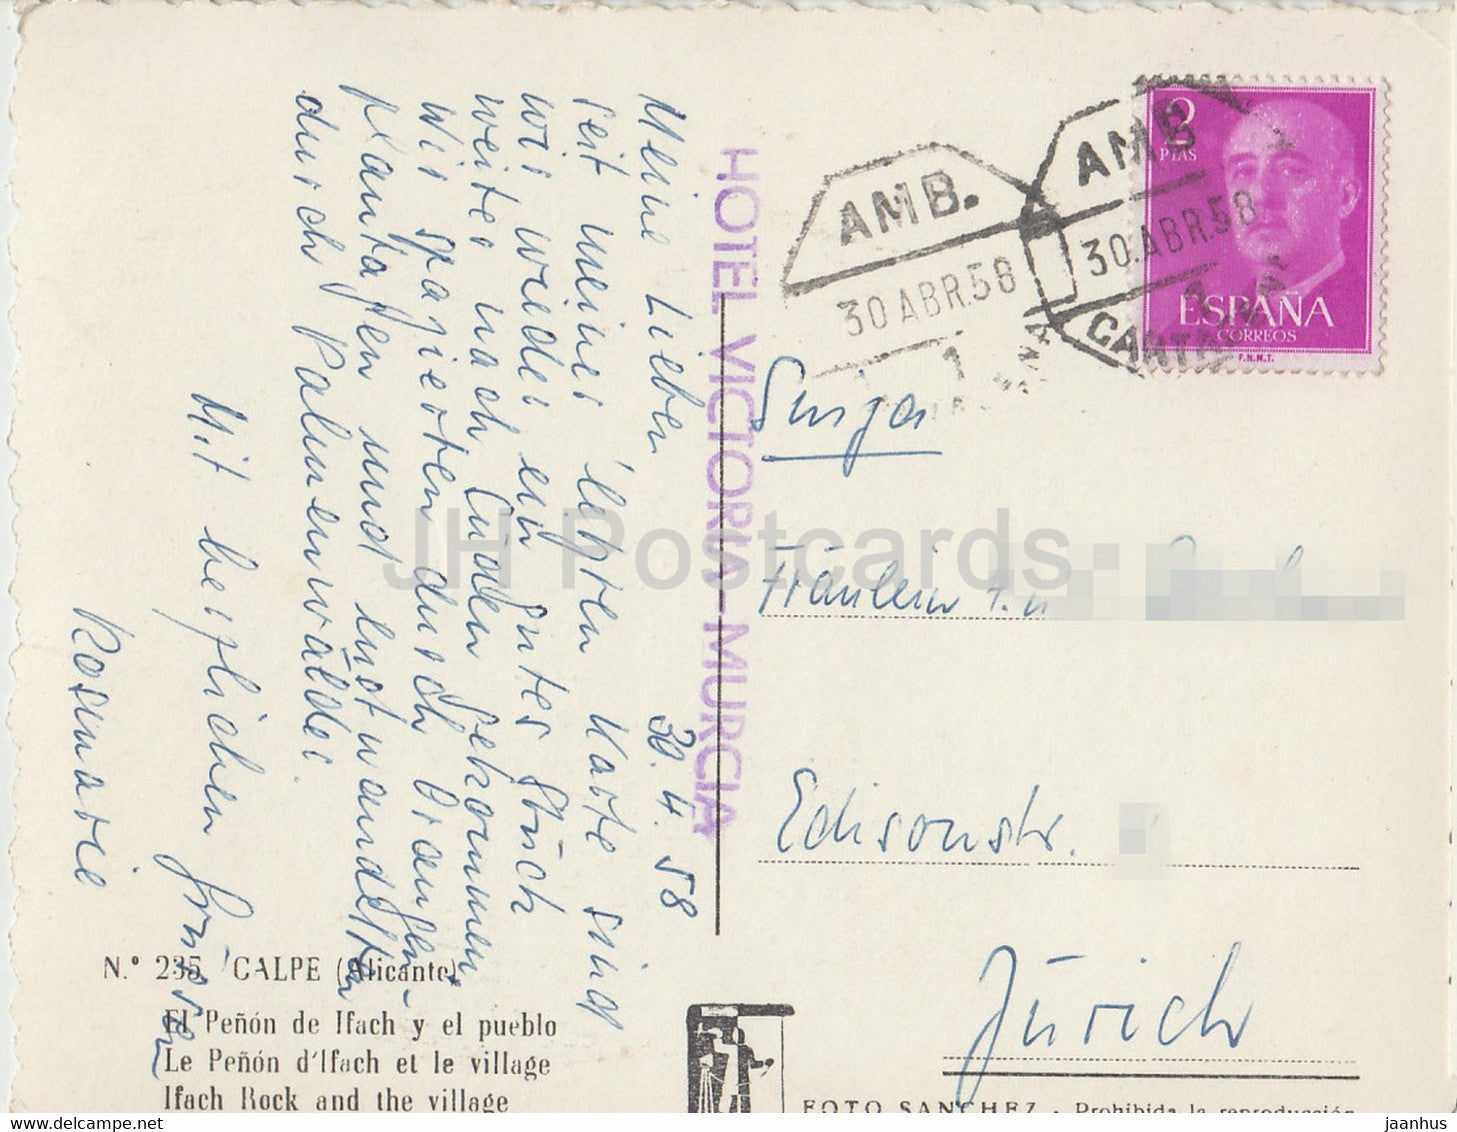 30. 4. 58
Meine Lieben
seit meiner letzten Karte sind
wir wieder ein gutes Stück
weiter nach Süden gekommen
Wir spazierten durch Orangen-
plantagen und lustwandelten
durch Palmenwälder.
Mit herzlichen Grüssen
Rosmarie
N.º 235, CALPE (Alicante)
El Peñón de Ifach y el pueblo
Le Peñón d'Ifach et le village
Ifach Rock and the village
HOTEL VICTORIA-MURCIA
AMB.
30 ABR.58
1
AMB
30.ABR.58
1
2
PTAS
ESPAÑA
CORREOS
F.N.M.T.
Fräulein
Edisonstr.
Zürich
FOTO SANCHEZ - Prohibida la reproducción
JH Postcards
www.delcampe.net
jaanhus